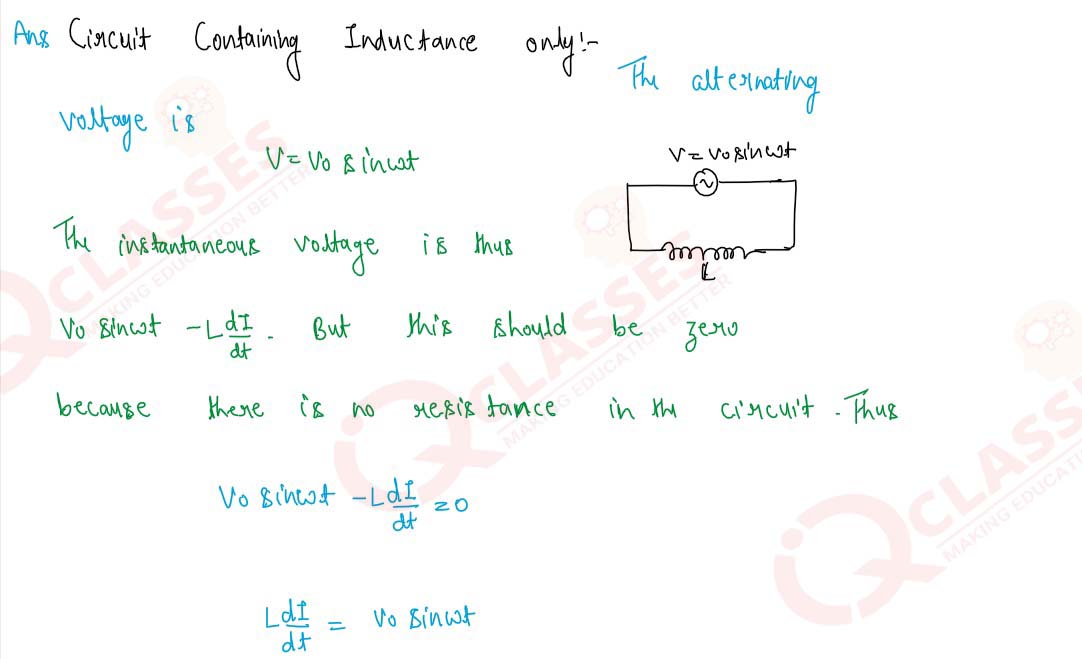 Ans Circuit Containing Inductance only:-
The alternating
voltage is
V = V0 sinωt
V = V0 sinωt
L
The instantaneous voltage is thus
V0 sinωt - L dI/dt . But this should be zero
because there is no resistance in the circuit. Thus
V0 sinωt - L dI/dt = 0
L dI/dt = V0 sinωt
QCLASSES
MAKING EDUCATION BETTER
QCLASSES
MAKING EDUCATION BETTER
QCLASS
MAKING EDUCATI